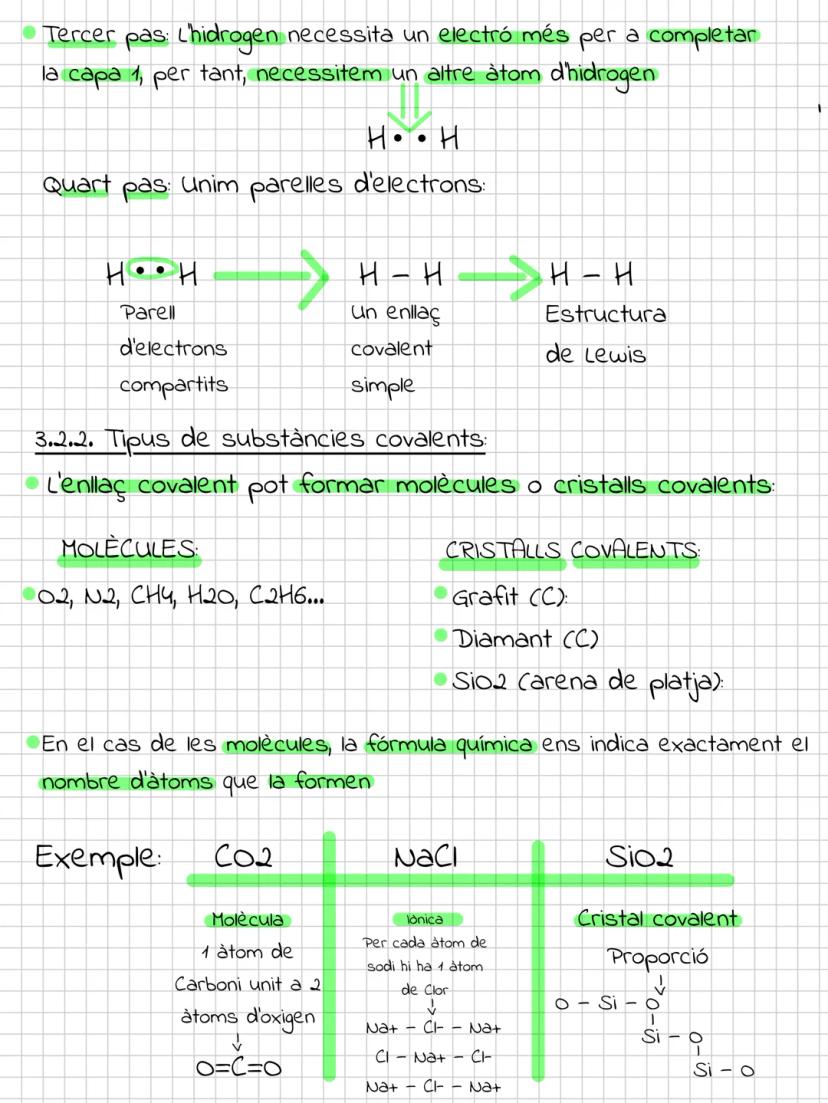 Tercer pas: L'hidrogen necessita un electró més per a completar
la capa 1, per tant, necessitem un altre àtom d'hidrogen
H • • H
Quart pas: Unim parelles d'electrons:
H • • H H – H H – H
Parell Un enllaç Estructura
d'electrons covalent de Lewis
compartits simple
3.2.2. Tipus de substàncies covalents:
L'enllaç covalent pot formar molècules o cristalls covalents:
MOLÈCULES: CRISTALLS COVALENTS:
O2, N2, CH4, H2O, C2H6... Grafit (C):
Diamant (C)
SiO2 (arena de platja):
En el cas de les molècules, la fórmula química ens indica exactament el
nombre d'àtoms que la formen
Exemple: CO2 NaCl SiO2
Molècula
1 àtom de
Carboni unit a 2
àtoms d'oxigen
O=C=O
Iònica
Per cada àtom de
sodi hi ha 1 àtom
de Clor
Na+ – Cl- – Na+
Cl – Na+ – Cl-
Na+ – Cl- – Na+
Cristal covalent
Proporció
O – Si – O
Si – O
Si – O